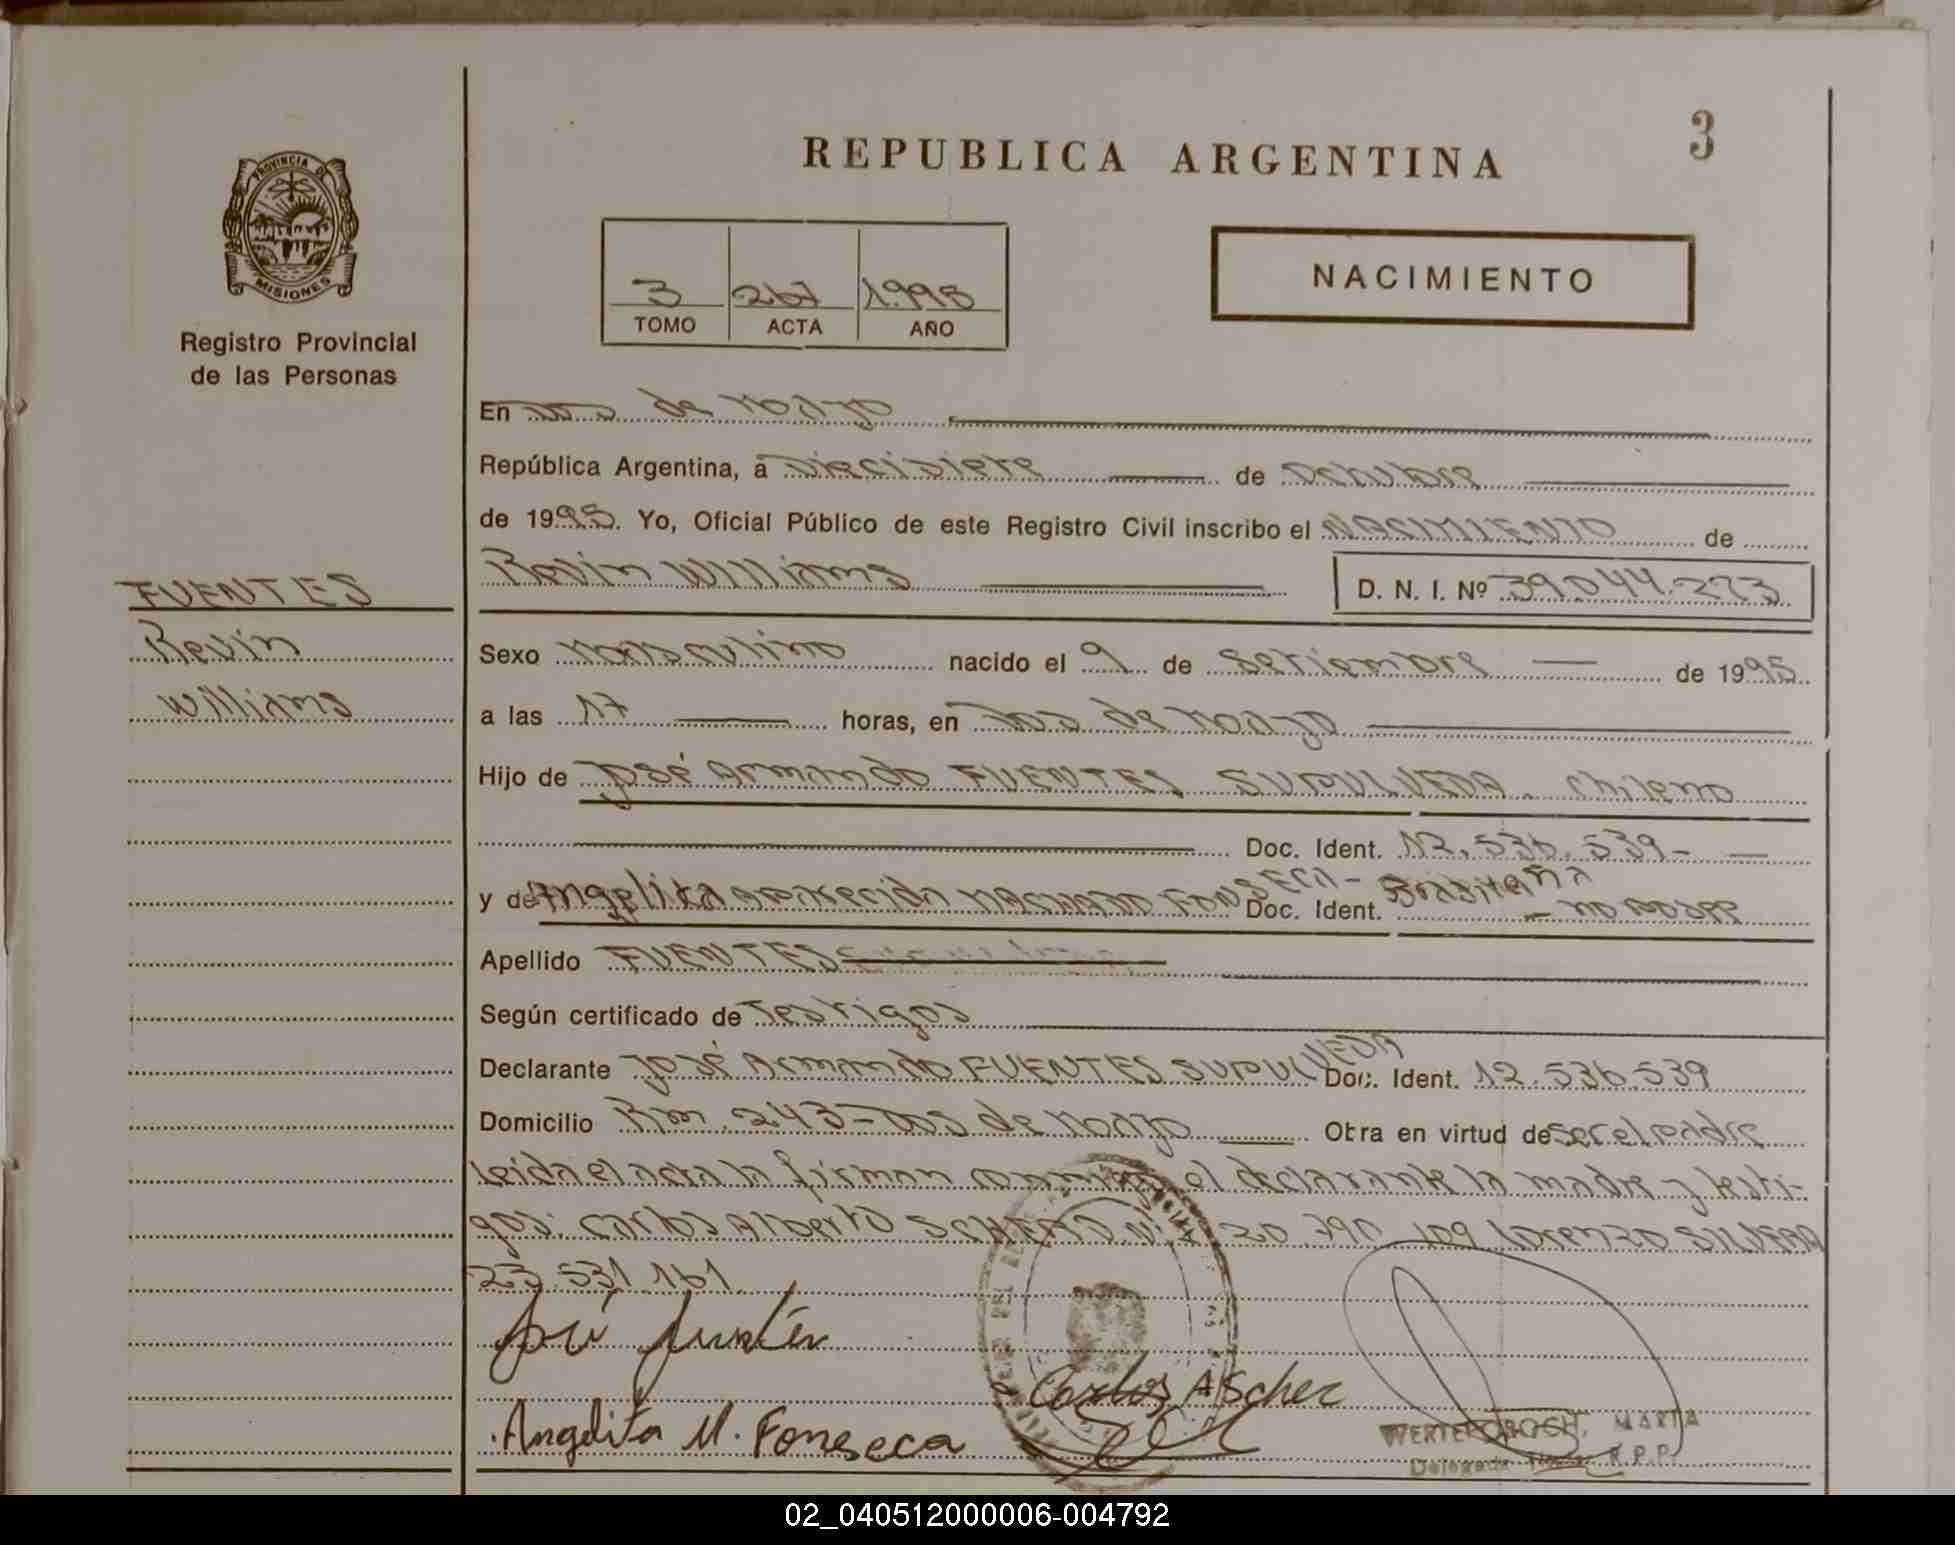 REPUBLICA ARGENTINA
3
PROVINCIA DE
MISIONES
Registro Provincial
de las Personas
3 267 1995
TOMO ACTA AÑO
NACIMIENTO
En Dos de Mayo
República Argentina, a Diecisiete de Octubre
de 1995. Yo, Oficial Público de este Registro Civil inscribo el NACIMIENTO de
Kevin Williams D. N. I. Nº 39.044.273
FUENTES
Kevin
Williams
Sexo Masculino nacido el 9 de Setiembre de 1995
a las 17 horas, en Dos de Mayo
Hijo de José Armando FUENTES SUPULVEDA. Chileno
Doc. Ident. 12.536.539-
y de Angelita Aparecida MACHADO FONSECA- Brasileña
Doc. Ident. - no posee
Apellido FUENTES
Según certificado de Testigos
Declarante José Armando FUENTES SUPULVEDA Doc. Ident. 12.536.539
Domicilio Km. 243 - Dos de Mayo Obra en virtud de ser el padre
Leida el acta la firman conmigo el declarante la madre y testi-
gos: Carlos Alberto 20.790.109 Lorenzo SILVEIRA
23.531.161
Angelita M. Fonseca
Carlos A Scher
MARTA
Delegada R.P.P.
02_040512000006-004792